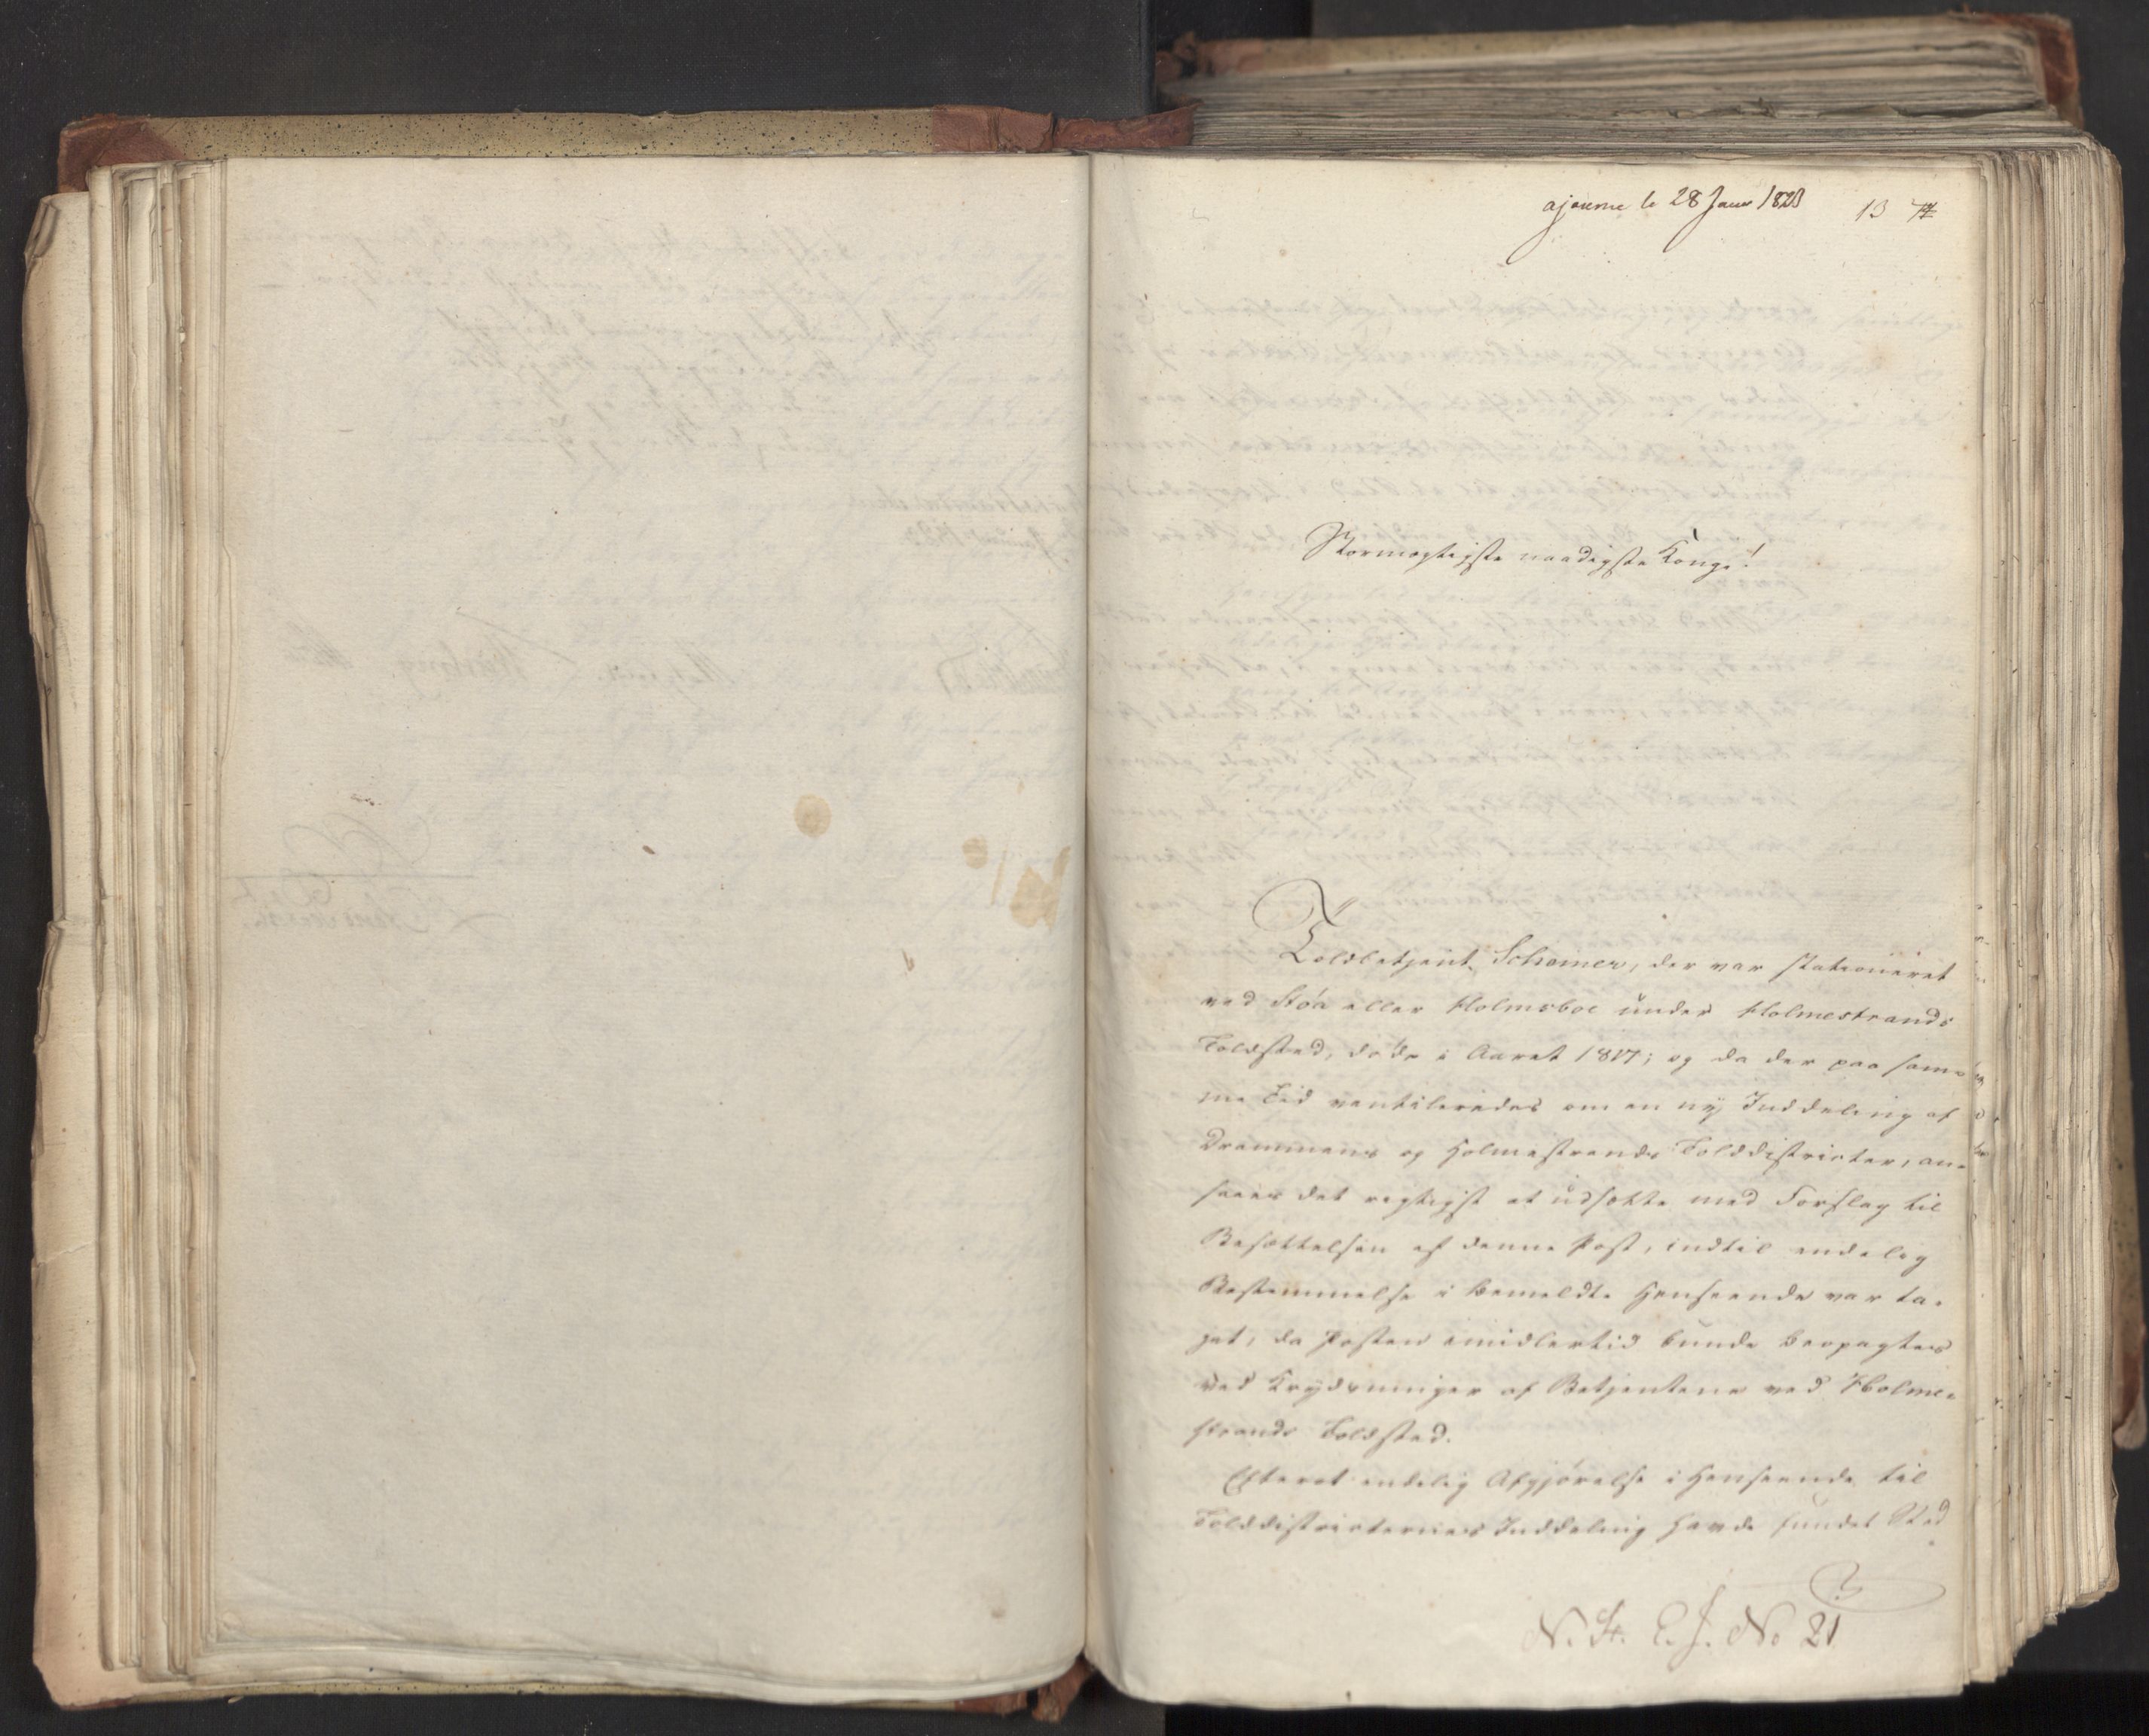 ajourné le 28 Janv 1823
13
Stormægtigste naadigste Konge!
Toldbetjent Schemer, der var stationeret
ved Støa eller Holmsboe under Holmestrands
Toldsted, døde i Aaret 1817; og da der paa sam-
me Tid ventileredes om en ny Inddeling af
Drammens og Holmestrands Tolddistricter, an-
saaes det rigtigst at udsætte med Forslag til
Besættelsen af denne Post, indtil endelig
Bestemmelse i bemeldte Henseende var ta-
get, da Posten imidlertid kunde beopagtes
ved Krydsninger af Betjentene ved Holme-
strands Toldsted.
Efterat endelig Afgjørelse i Henseende til
Tolddistricternes Inddeling havde fundet Sted
N. St. E. J. No 21